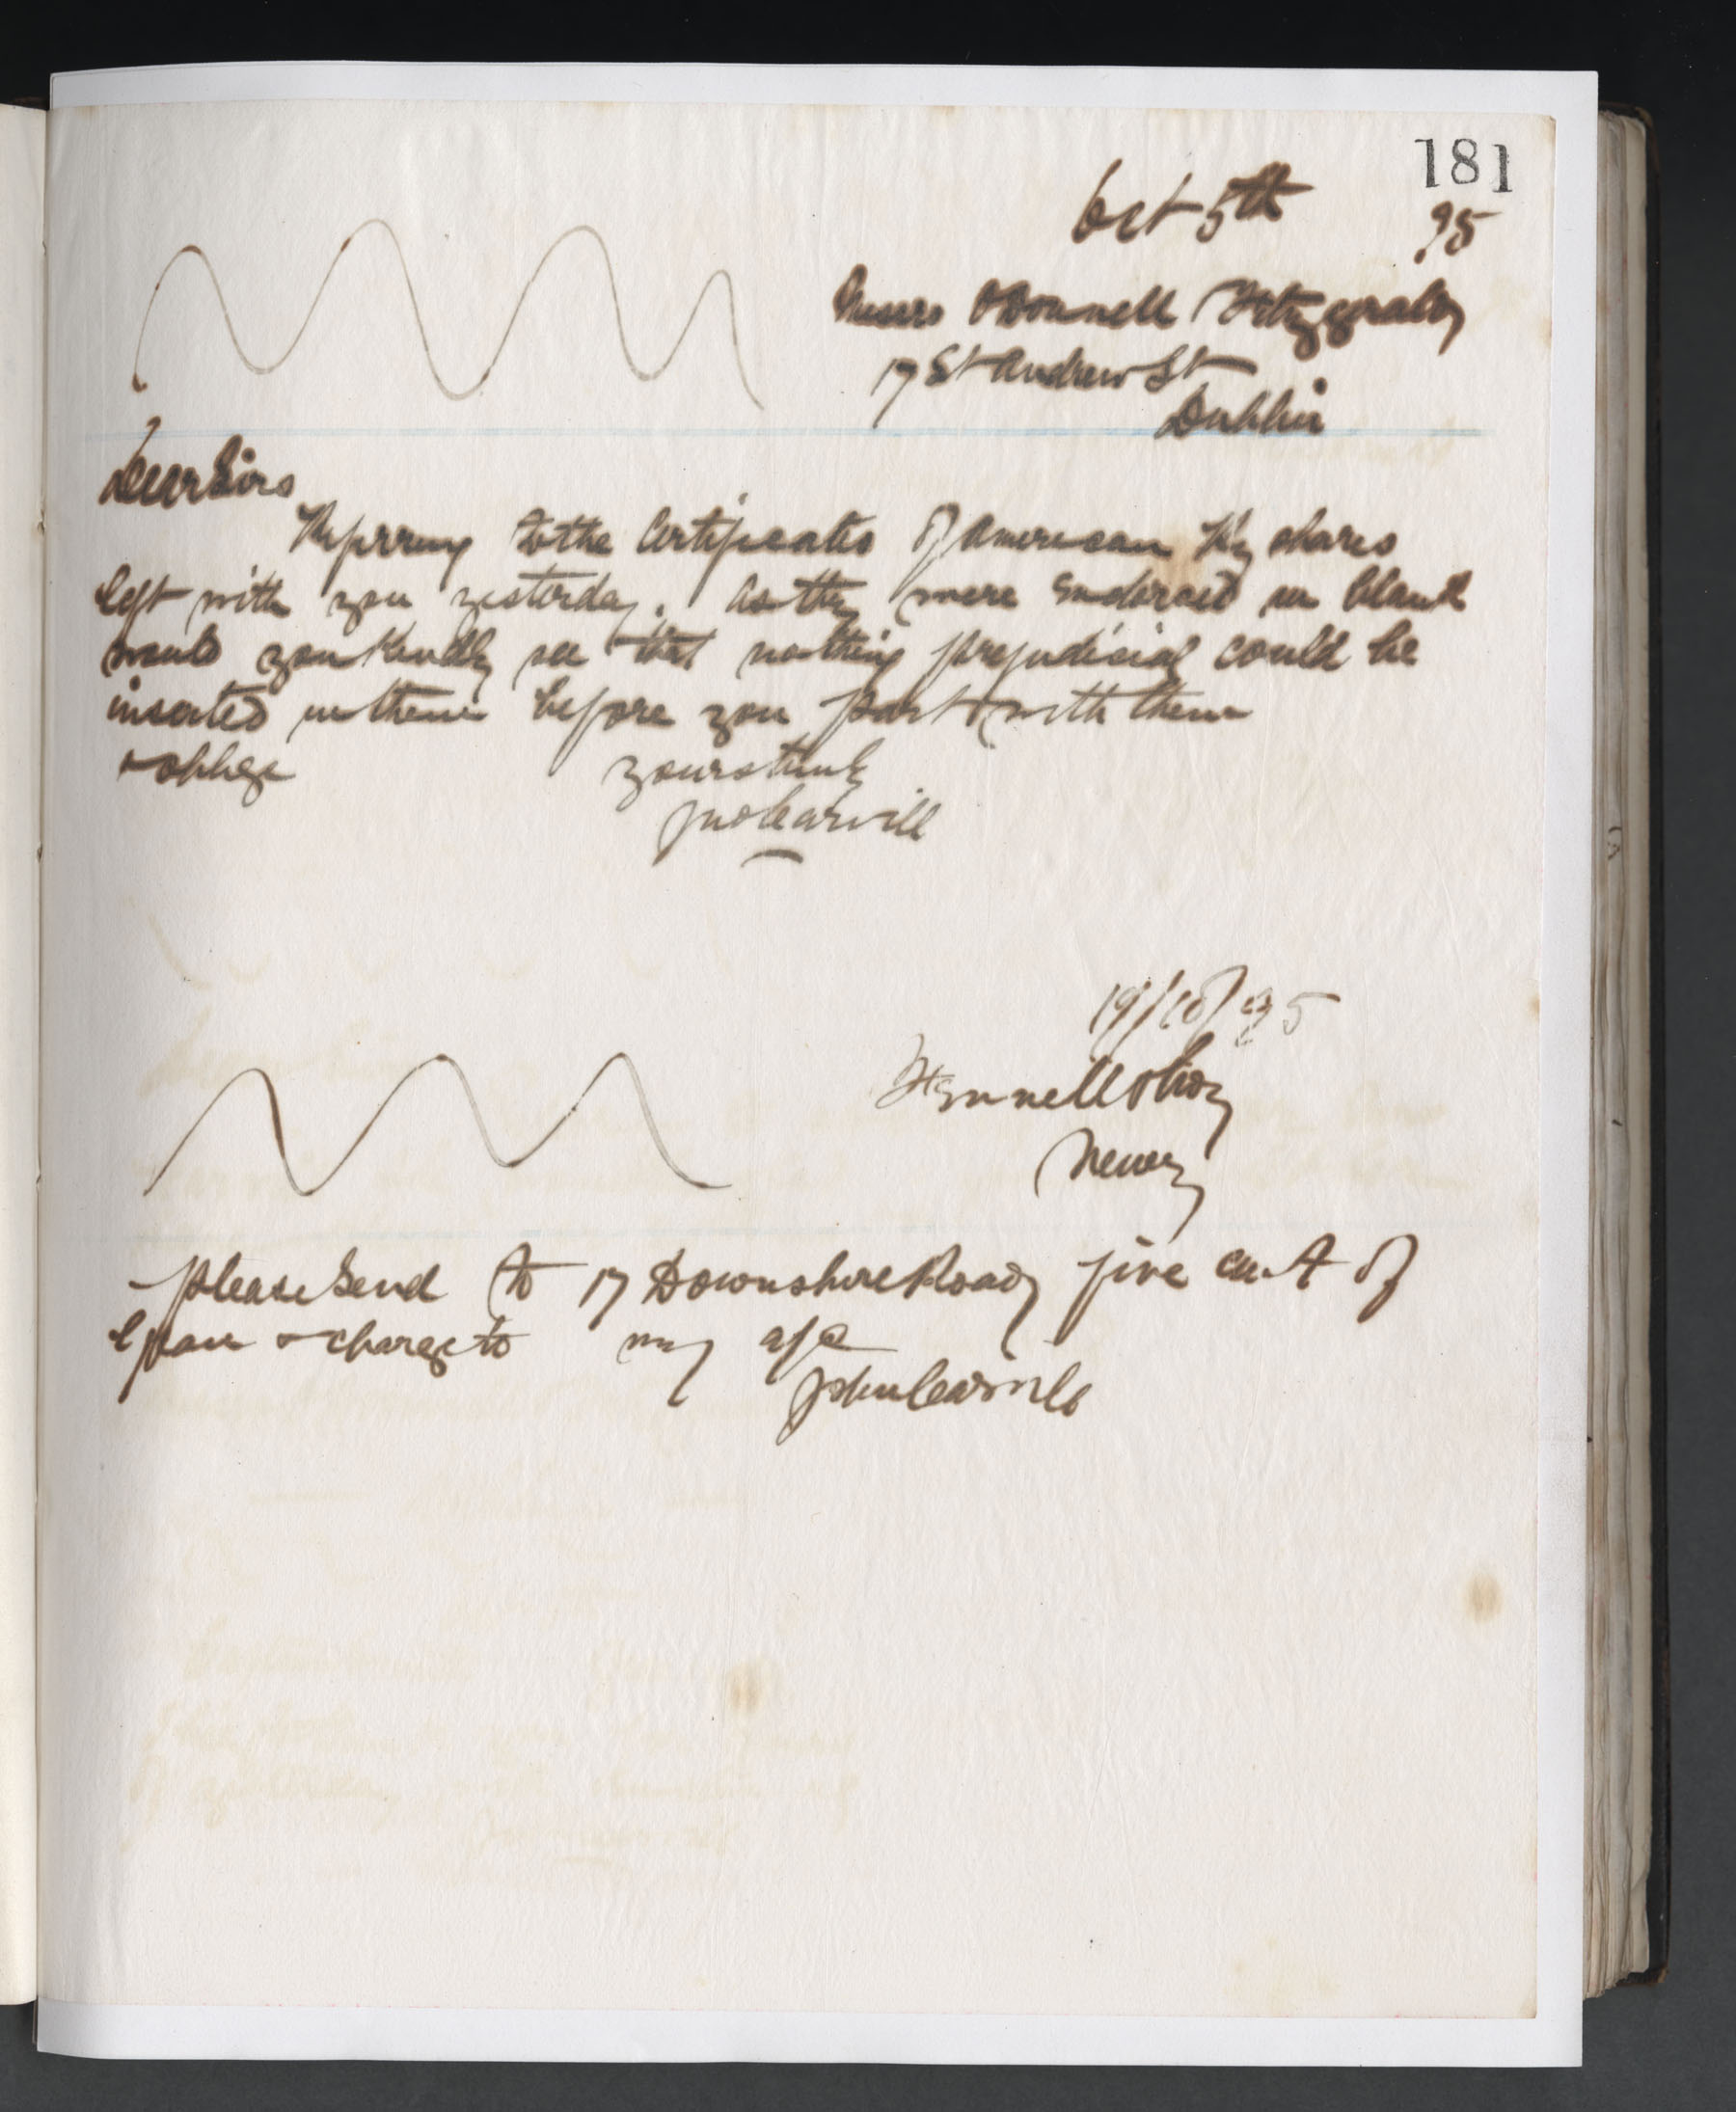 181
Oct 5th 95
Messrs O'Donnell Fitzgerald
17 St Andrew St
Dublin
Dear Sirs
Referring to the Certificates of American Ry shares
left with you yesterday. As they were endorsed in blank
would you kindly see that nothing prejudicial could be
inserted in them before you part with them
& oblige yours truly
Jno Carvill
19/10/95
Fennell &
Newry
please send to 17 Downshire Road five cwt of
& charge to my a/c
John Carvill